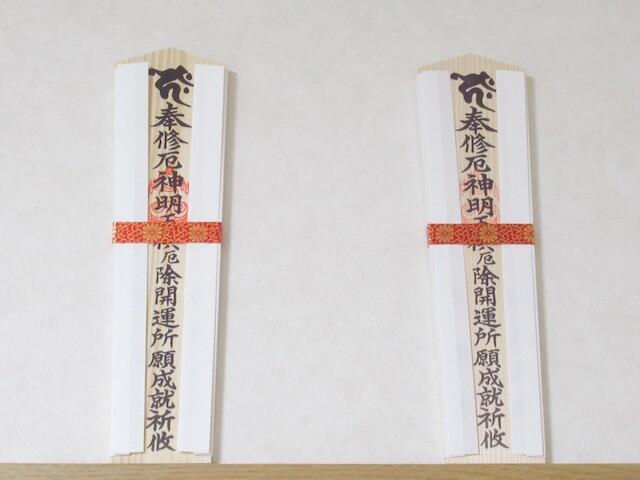 奉修厄神明王供厄除開運所願成就祈攸
奉修厄神明王供厄除開運所願成就祈攸